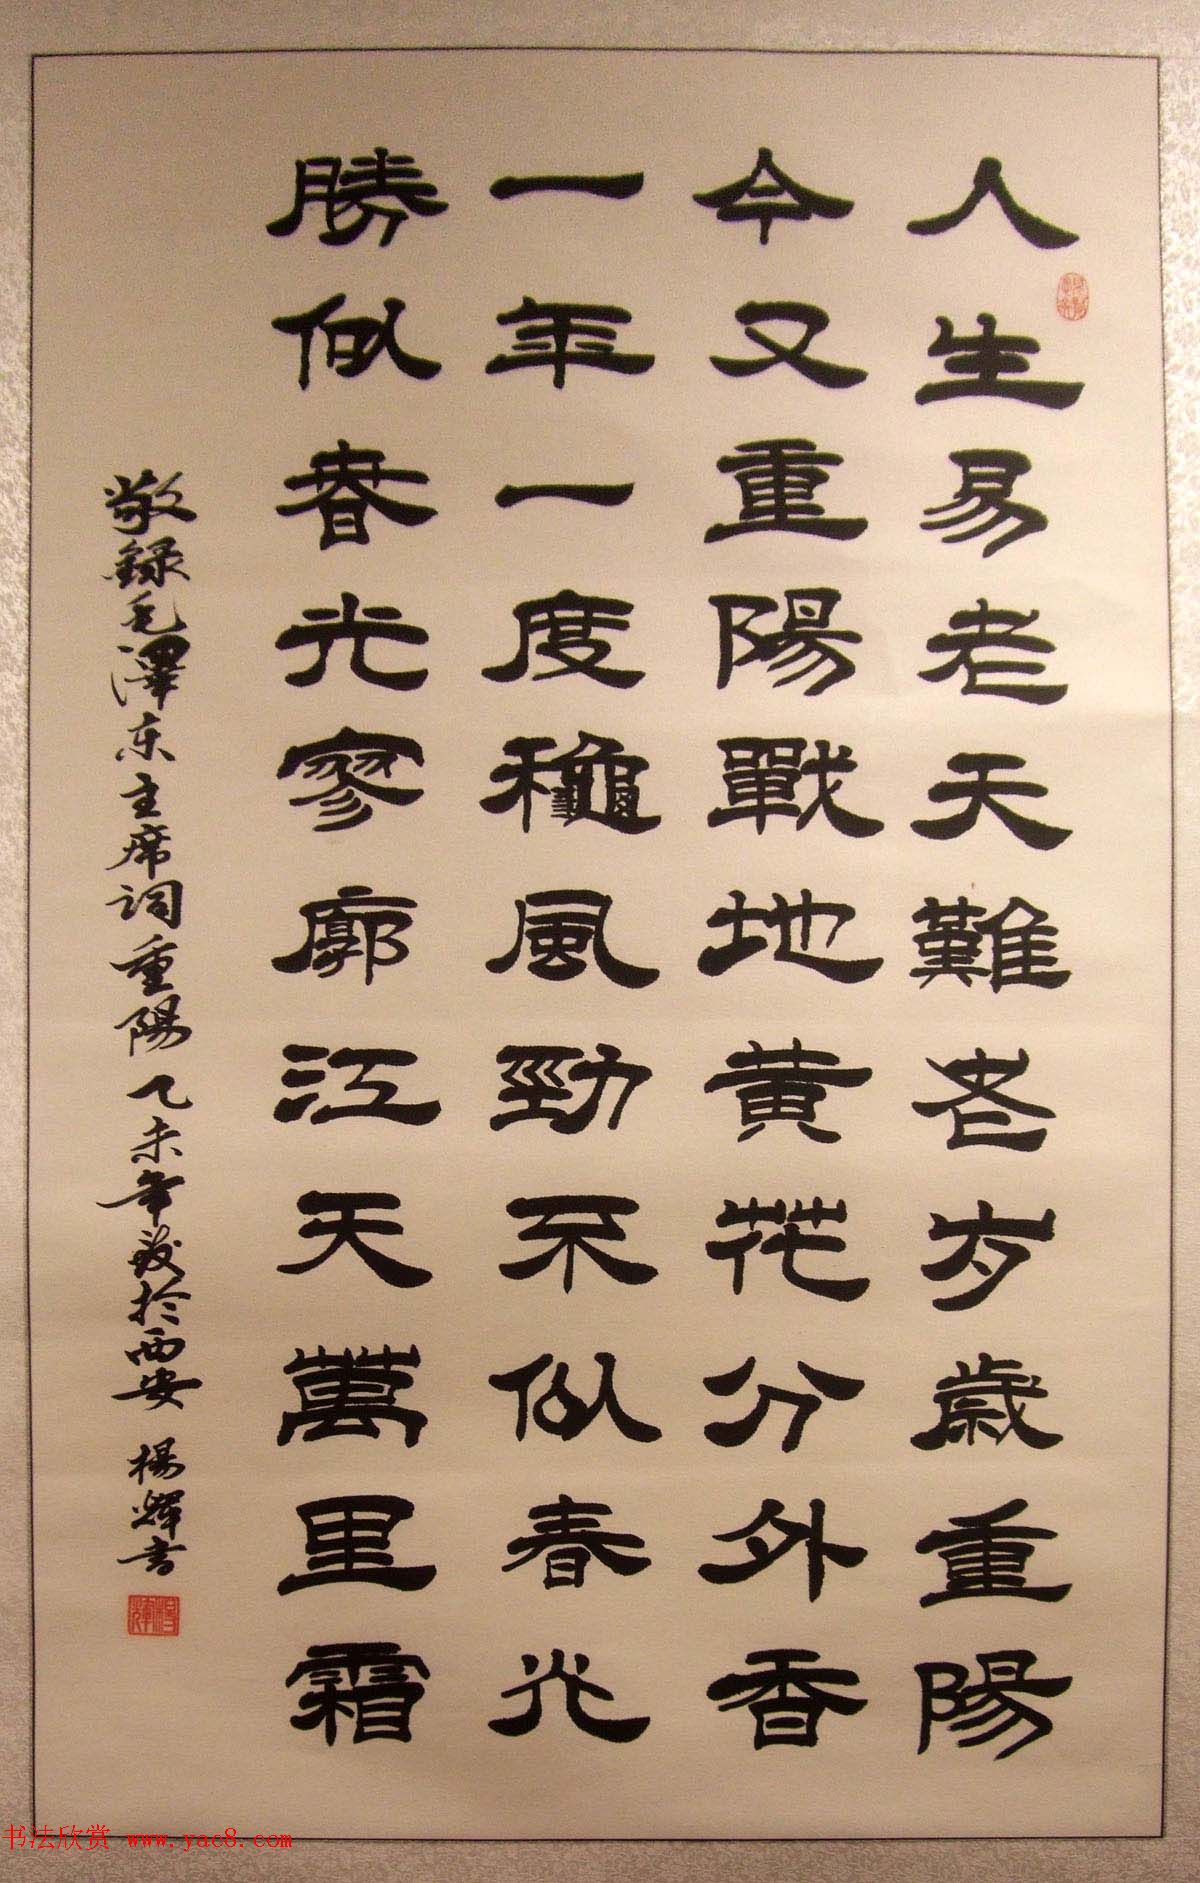 人生易老天難老歲歲重陽
今又重陽戰地黄花分外香
一年一度龝風勁不似春光
勝似春光寥廓江天萬里霜
敬録毛澤东主席詞重陽 乙未年 於西安 楊輝書
楊輝
书法欣赏 www.yac8.com